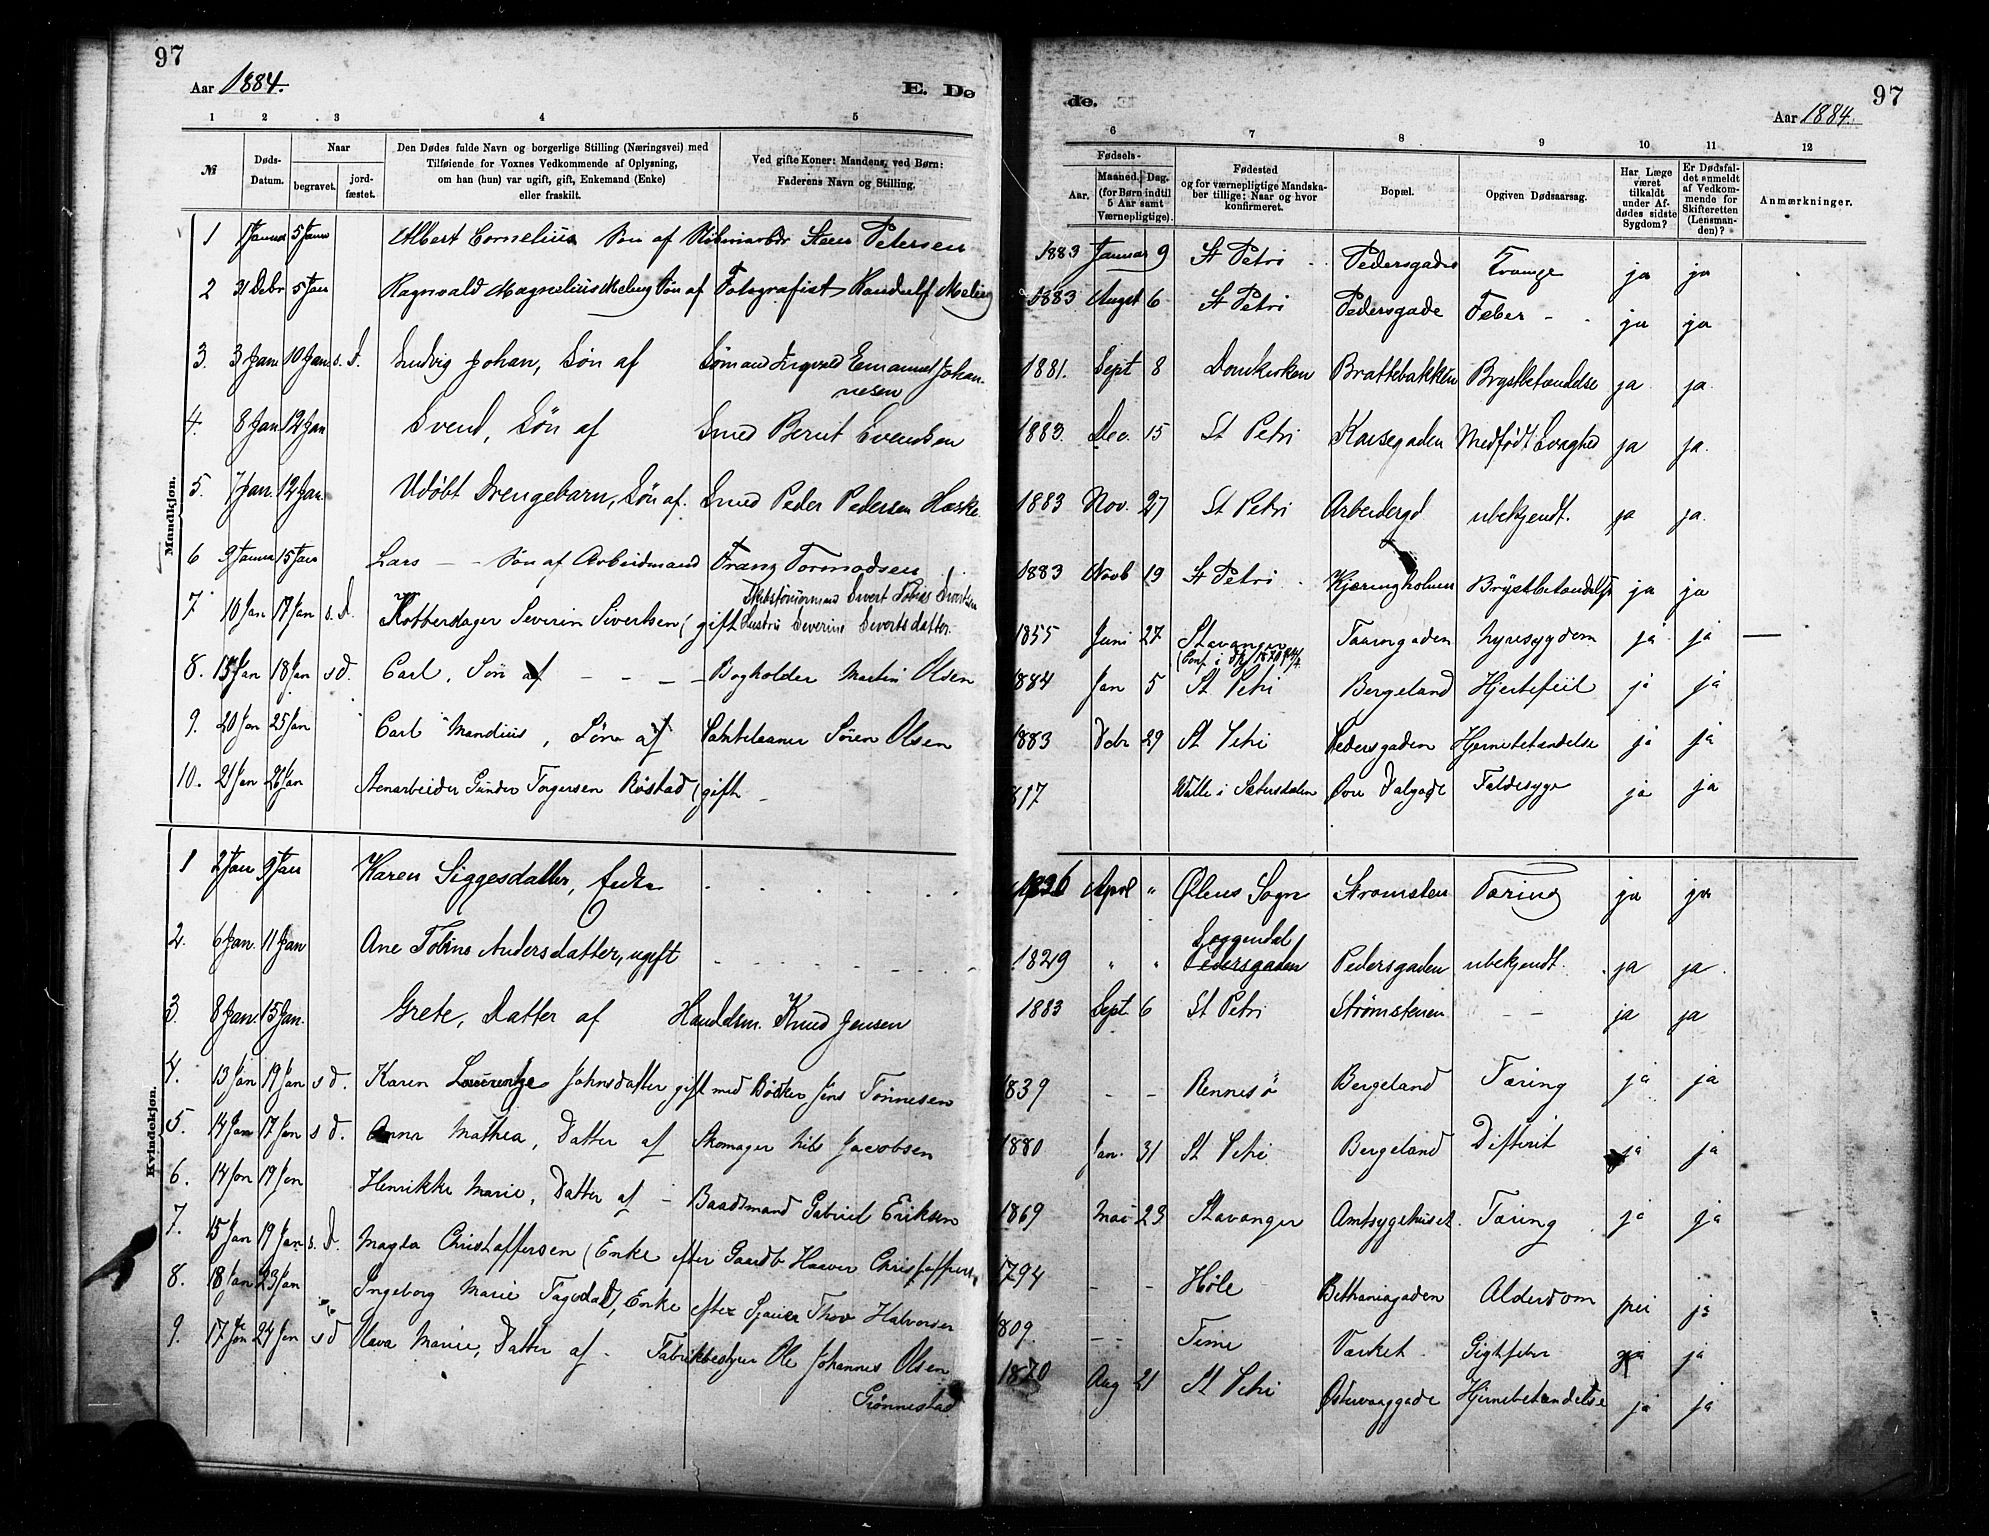 97
Aar 1884.
E. Dø
1 2 3 4 5
№
Døds-
Datum.
Naar
begravet.
jord-
fæstet.
Den Dødes fulde Navn og borgerlige Stilling (Næringsvei) med
Tilføiende for Voxnes Vedkommende af Oplysning,
om han (hun) var ugift, gift, Enkemand (Enke)
eller fraskilt.
Ved gifte Koner: Mandens, ved Børn:
Faderens Navn og Stilling.
Mandkjøn.
1 5 Janu Albert Cornelius Søn af Steen Petersen
2 31 Debr 5 Jan Ragnvald Magnelius Meling Søn af Fotografist Randulf Meling
3. 3 Jan 10 Jan s. d. Ludvig Johan, Søn af Sømand Ingvald Emanuel Johan-
nesen
4. 8 Jan 12 Jan Svend, Søn af Smed Bernt Svendsen
5. 7 Jan. 12 Jan. Udøbt Drengebarn, Søn af. Smed Peder Pedersen Haske
6 9 Januar 15 Jan Lars - - Søn af Arbeidmand Franz Tormodsen
7 10 Jan 17 Jan s. d. Severin Sivertsen (gift Sivert Tobias Sivertsen
Severine Sivertsdatter.
8. 15 Jan 18 Jan s d. Carl, Søn af - - - - Bogholder Martin Olsen
9. 20 Jan 25 Jan Carl Mandius, Søn af Søren Olsen
10. 21 Jan 26 Jan Stenarbeider Gunder Torgersen Røstad (gift -
Kvindekjøn.
1 2 Jan 9 Jan Karen Siggesdatter, Enke
2. 6 Jan. 11 Jan Ane Tobine Andersdatter, ugift
3. 8 Jan. 15 Jan. Grete, Datter af Handelsm. Knud Jensen
4. 13 Jan 19 Jan s d. Karen Laurentze Johnsdatter gift med Bødker Jens Tønnesen
5. 14 Jan 17 Jan s d. Anna Mathea, Datter af Skomager Nils Jacobsen
6. 14 Jan 19 Jan Henrikke Marie, Datter af - Baadsmand Gabriel Eriksen
7. 15 Jan 19 Jan s. d. Magla Christoffersen (Enke efter Gaardb Haaver Christoffersen
8. 18 Jan 23 Jan Ingeborg Marie Tagedal, Enke efter Sjauer Thov Halvorsen
9. 17 Jan 24 Jan s d Hava Marie, Datter af - Fabrikbestyrer Ole Johannes Olsen
Grønnestad
97
de.
Aar 1884.
6 7 8 9 10 11 12
Fødsels-
Aar.
Maaned. Dag.
(for Børn indtil
5 Aar samt
Værnepligtige).
Fødested
og for værnepligtige Mandska-
ber tillige: Naar og hvor
konfirmeret.
Bopæl.
Opgiven Dødsaarsag.
Har Læge
været
tilkaldt
under Af-
dødes sidste
Sygdom?
Er Dødsfal-
det anmeldt
af Vedkom-
mende for
Skifteretten
(Lensman-
den)?
Anmærkninger.
1883 Januar 9 St Petri Pedersgaden ja ja
1883 Augst 6 St Petri Pedersgade Feber - - ja ja
1881. Sept 8 Domkirken Brattebakken Brystbetændelse ja ja.
1883. Dec. 15 St Petri Karsegaden Medfødt Svaghed ja ja.
1883 Nov. 27 St Petri Arbeidergd ubekjendt. ja ja.
1883 Novb 19 St Petri Kjæringholmen Brystbetændelse ja ja
1855 Juni 27 Stavanger Taarngaden Nyresygdom ja ja —
1884 Jan 5 St Petri Bergeland Hjertefeil ja ja
1883 Debr 29 St Petri Pedersgaden Hjernebetændelse ja ja
817 Walle i Sætersdalen Øvre Dalgade Faldesyge ja ja
1836 April " Ølens Sogn Strømsten Tæring ja ja
Soggendal
1829 " " Pedersgaden Pedersgaden ubekjendt. ja ja.
1883 Sept. 6 St Petri Strømstenen - - ja ja
1839 - - Rennesø Bergeland Tæring ja ja
1880 Jan. 31 St Petri Bergeland Difterit ja ja
1869 Mai 23 Stavanger Amtsygehuset. Tæring ja ja
1794 - - Høle Bethaniagaden Alderdom nei ja
809. - - Time Værket. Gigtfeber ja ja
1870 Aug 21 St Petri Østervaaggade Hjernebetændelse ja ja